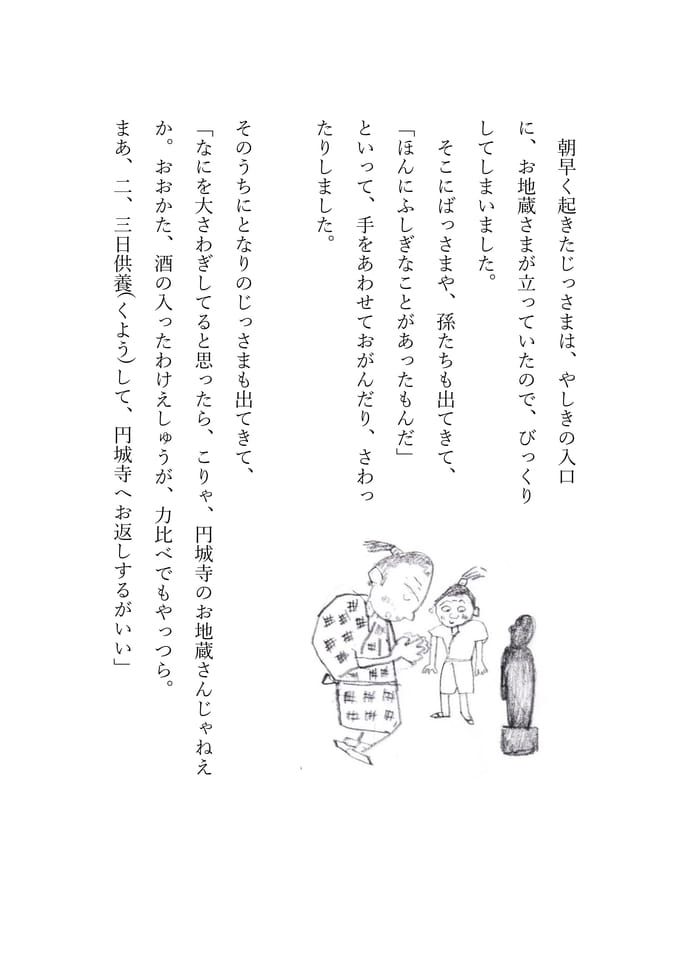 朝早く起きたじっさまは、やしきの入口
に、お地蔵さまが立っていたので、びっくり
してしまいました。
そこにばっさまや、孫たちも出てきて、
「ほんにふしぎなことがあったもんだ」
といって、手をあわせておがんだり、さわっ
たりしました。
そのうちにとなりのじっさまも出てきて、
「なにを大さわぎしてると思ったら、こりゃ、円城寺のお地蔵さんじゃねえ
か。おおかた、酒の入ったわけえしゅうが、力比べでもやっつら。
まあ、二、三日供養(くよう)して、円城寺へお返しするがいい」